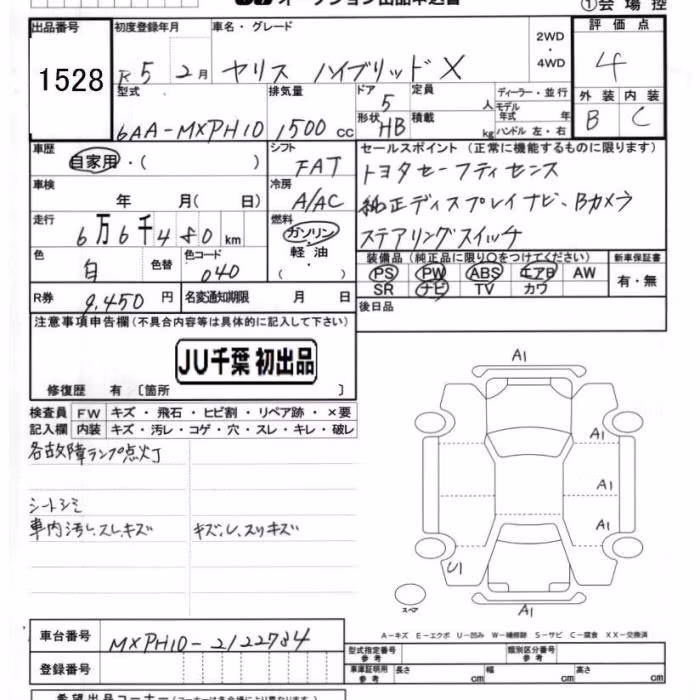 オークション出品申込書
①会場控
出品番号 初度登録年月 車名・グレード 2WD・4WD 評価点
1528 R5 2月 ヤリス ハイブリッド X 4
型式 排気量 ドア 5 定員 人 ディーラー・並行 外装 内装
6AA-MXPH10 1500 cc 形状 HB 積載 kg モデル年式 年 ハンドル 左・右 B C
車歴 自家用・( ) シフト FAT セールスポイント (正常に機能するものに限ります)
トヨタセーフティセンス
車検 年 月( 日) 冷房 A/AC 純正ディスプレイナビ、Bカメラ
走行 6万6千480 km 燃料 ガソリン・軽油・( ) ステアリングスイッチ
色 白 色替 色コード 040 装備品 (純正品に限り○をつけてください) 新車保証書
PS PW ABS エアB AW 有・無
SR ナビ TV カワ
R券 9,450 円 名変通知期限 月 日 後日品
注意事項申告欄 (不具合内容等は具体的に記入して下さい)
JU千葉 初出品
修復歴 有 〔箇所 〕
検査員 FW キズ・飛石・ヒビ割・リペア跡・×要
記入欄 内装 キズ・汚レ・コゲ・穴・スレ・キレ・破レ
各故障ランプ点灯
シートシミ
車内汚レ、スレ、キズ キズ、U、スリキズ
A1
A1
A1
A1
U1
スペア
A1
A-キズ E-エクボ U-凹み W-補修跡 S-サビ C-腐食 XX-交換済
車台番号 MXPH10-2122784
型式指定番号 参考 類別区分番号 参考
登録番号 車庫証明用 参考 長さ cm 幅 cm 高さ cm
希望出品コーナー